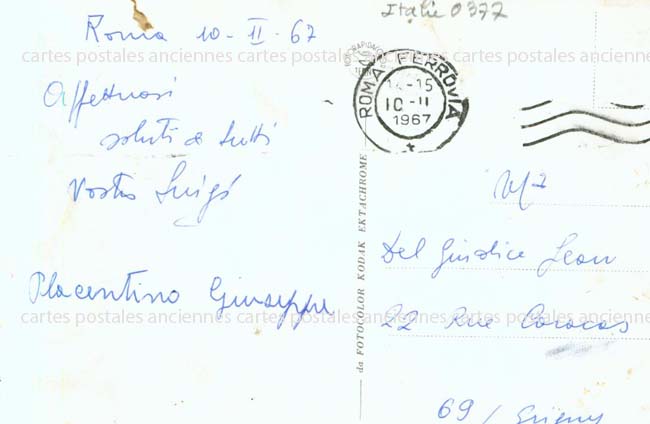 Italie 0377
Roma 10-II-67
cartes postales anciennes cartes postales anciennes cartes postales anciennes
ROMA FERROVIA
14-15
10-II
1967
Affettuosi
saluti a tutti
Vostro Luigi
da FOTOCOLOR KODAK EKTACHROME
Del Giudice Jean
Placentino Giuseppe
cartes postales anciennes cartes postales anciennes cartes postales anciennes
22 Rue Caracas
69/